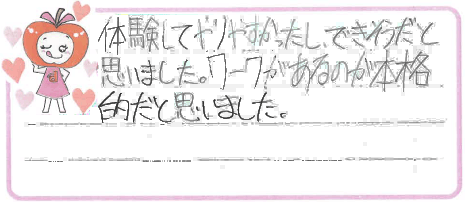 体験してやりやすかったし、できそうだと
思いました。ワークがあるのが本格
的だと思いました。